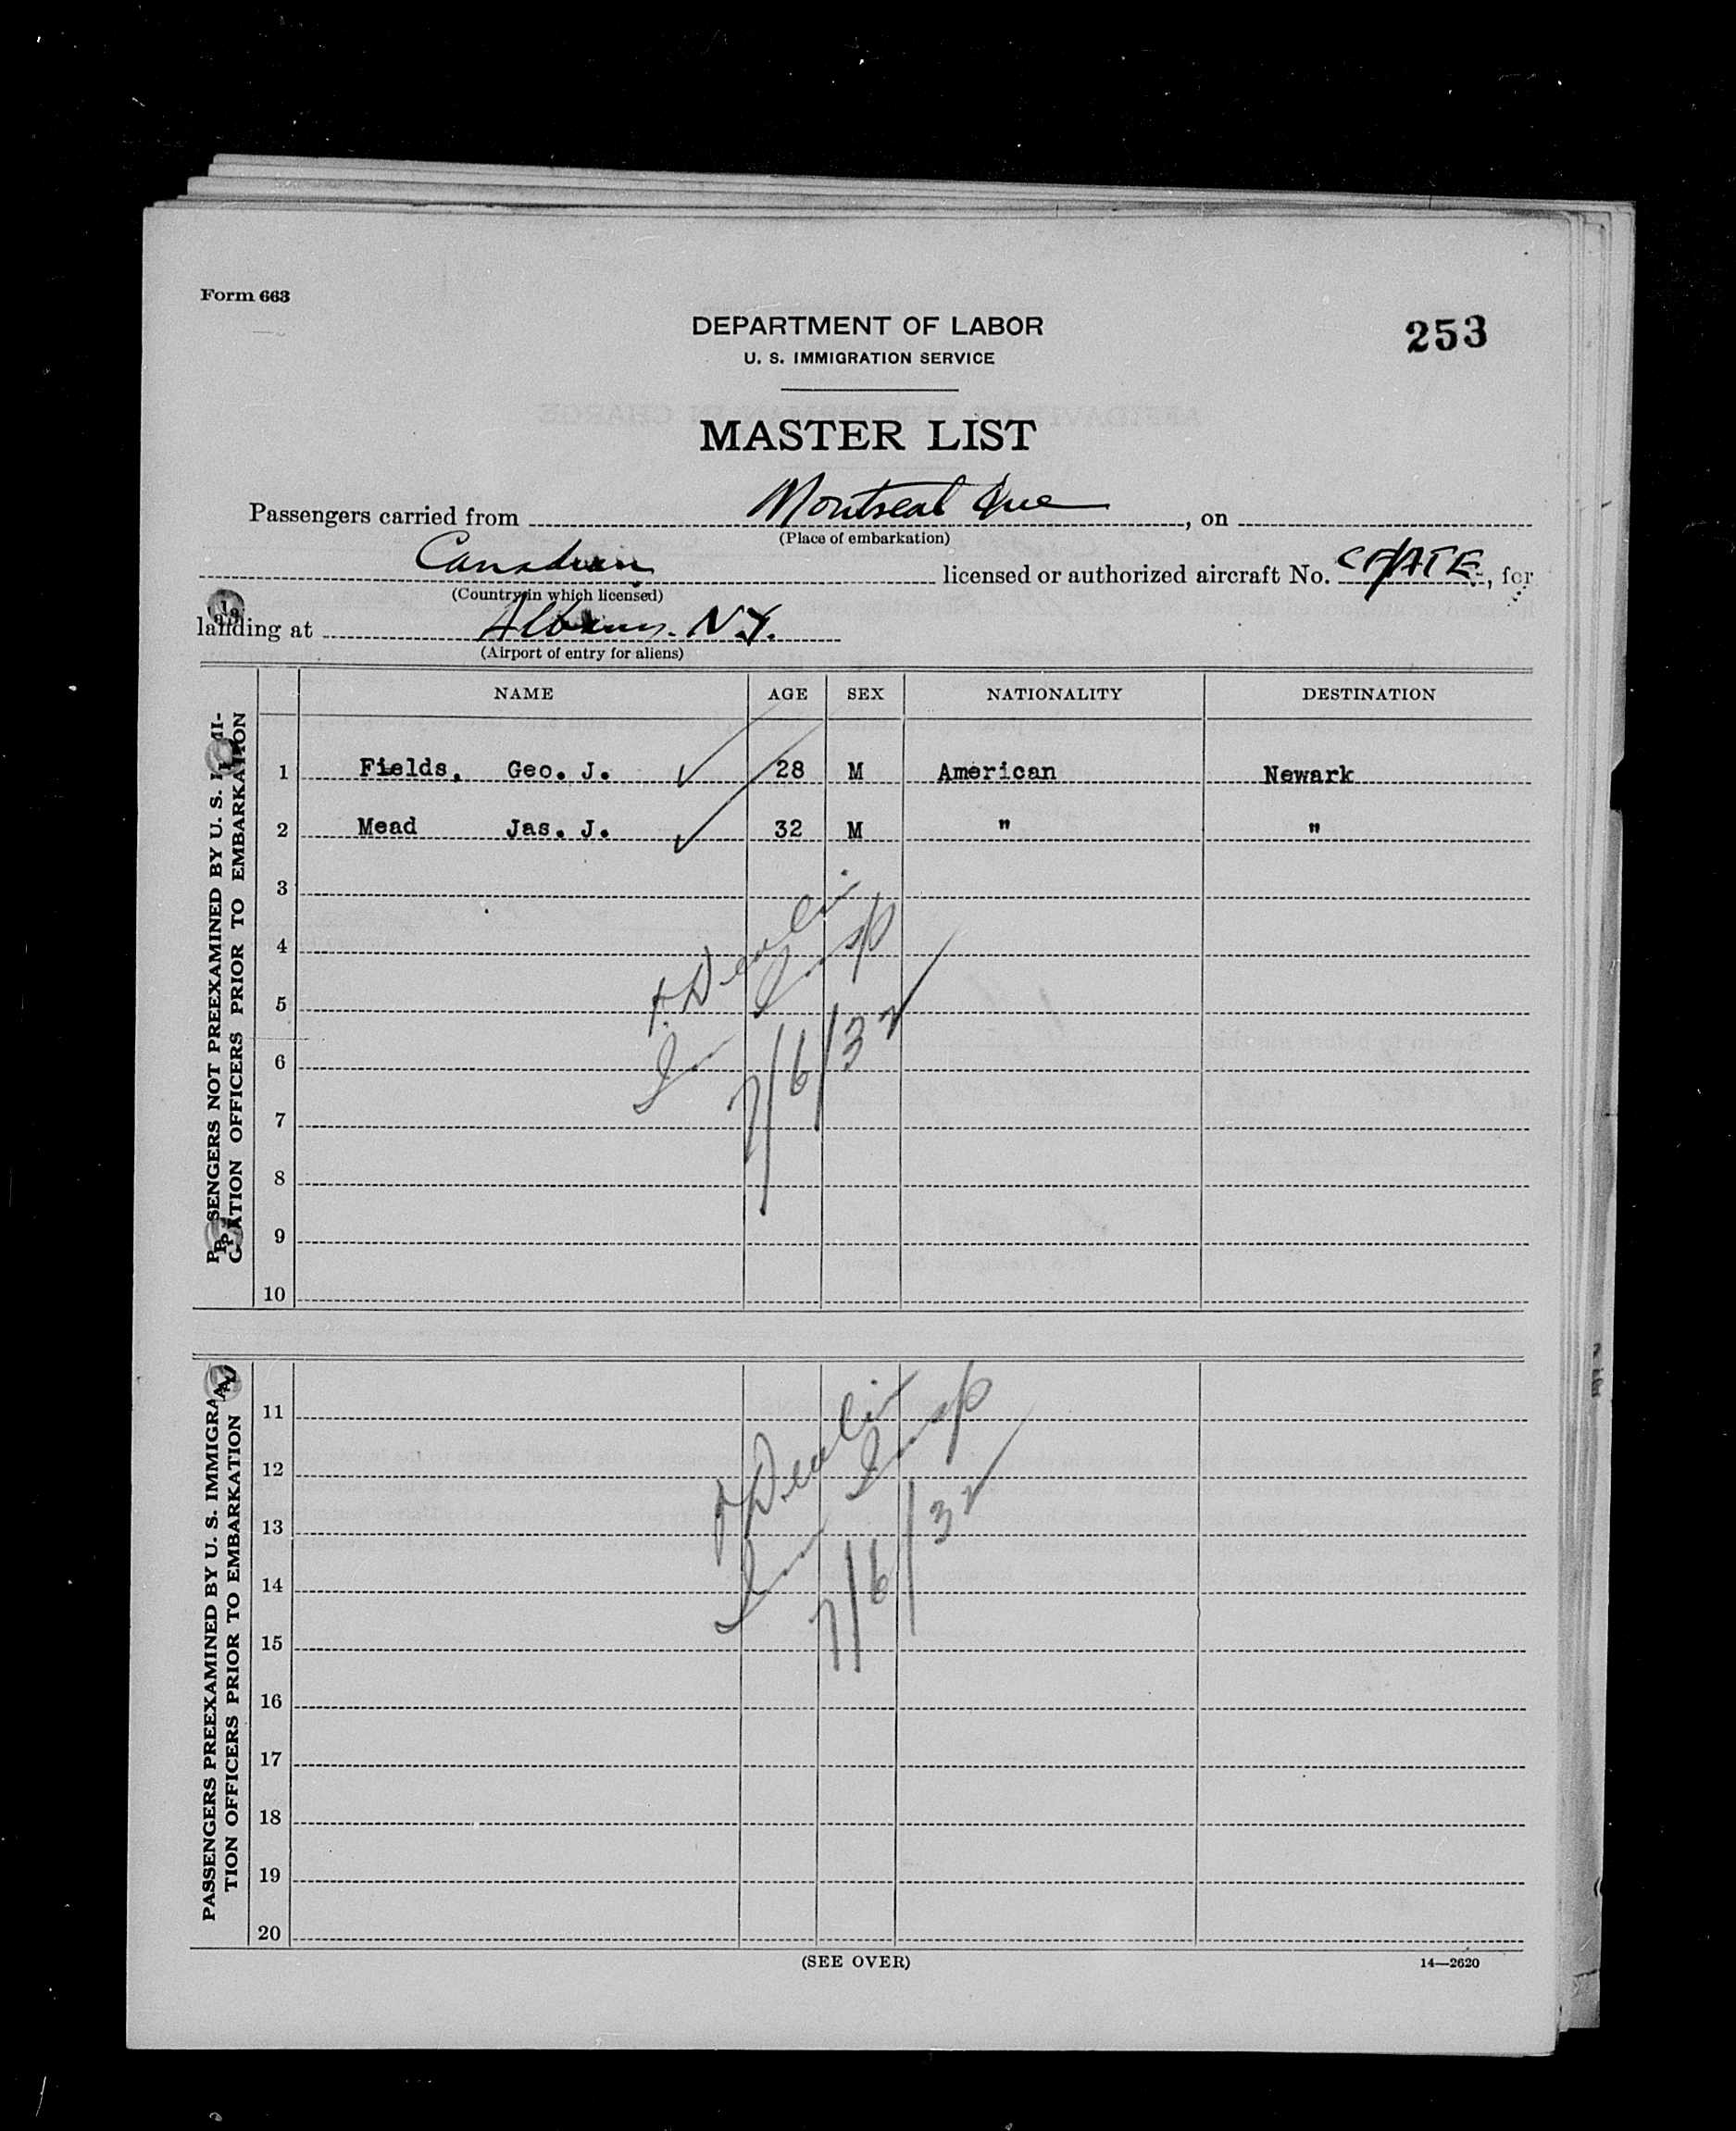 Form 663
DEPARTMENT OF LABOR
U. S. IMMIGRATION SERVICE
253
MASTER LIST
Passengers carried from Montreal Que, on
(Place of embarkation)
Canadian licensed or authorized aircraft No. , for
(Country in which licensed)
landing at Albany. N.Y.
(Airport of entry for aliens)
NAME AGE SEX NATIONALITY DESTINATION
PASSENGERS NOT PREEXAMINED BY U. S. IMMI-
GRATION OFFICERS PRIOR TO EMBARKATION
1 Fields, Geo. J. ✓ 28 M American Newark
2 Mead Jas. J. ✓ 32 M " "
3
4
5
6
7
8
9
10
Devlin
Im Insp
7/6/32
PASSENGERS PREEXAMINED BY U. S. IMMIGRA-
TION OFFICERS PRIOR TO EMBARKATION
11
12
13
14
15
16
17
18
19
20
Devlin
Im Insp
7/6/32
(SEE OVER)
14—2620